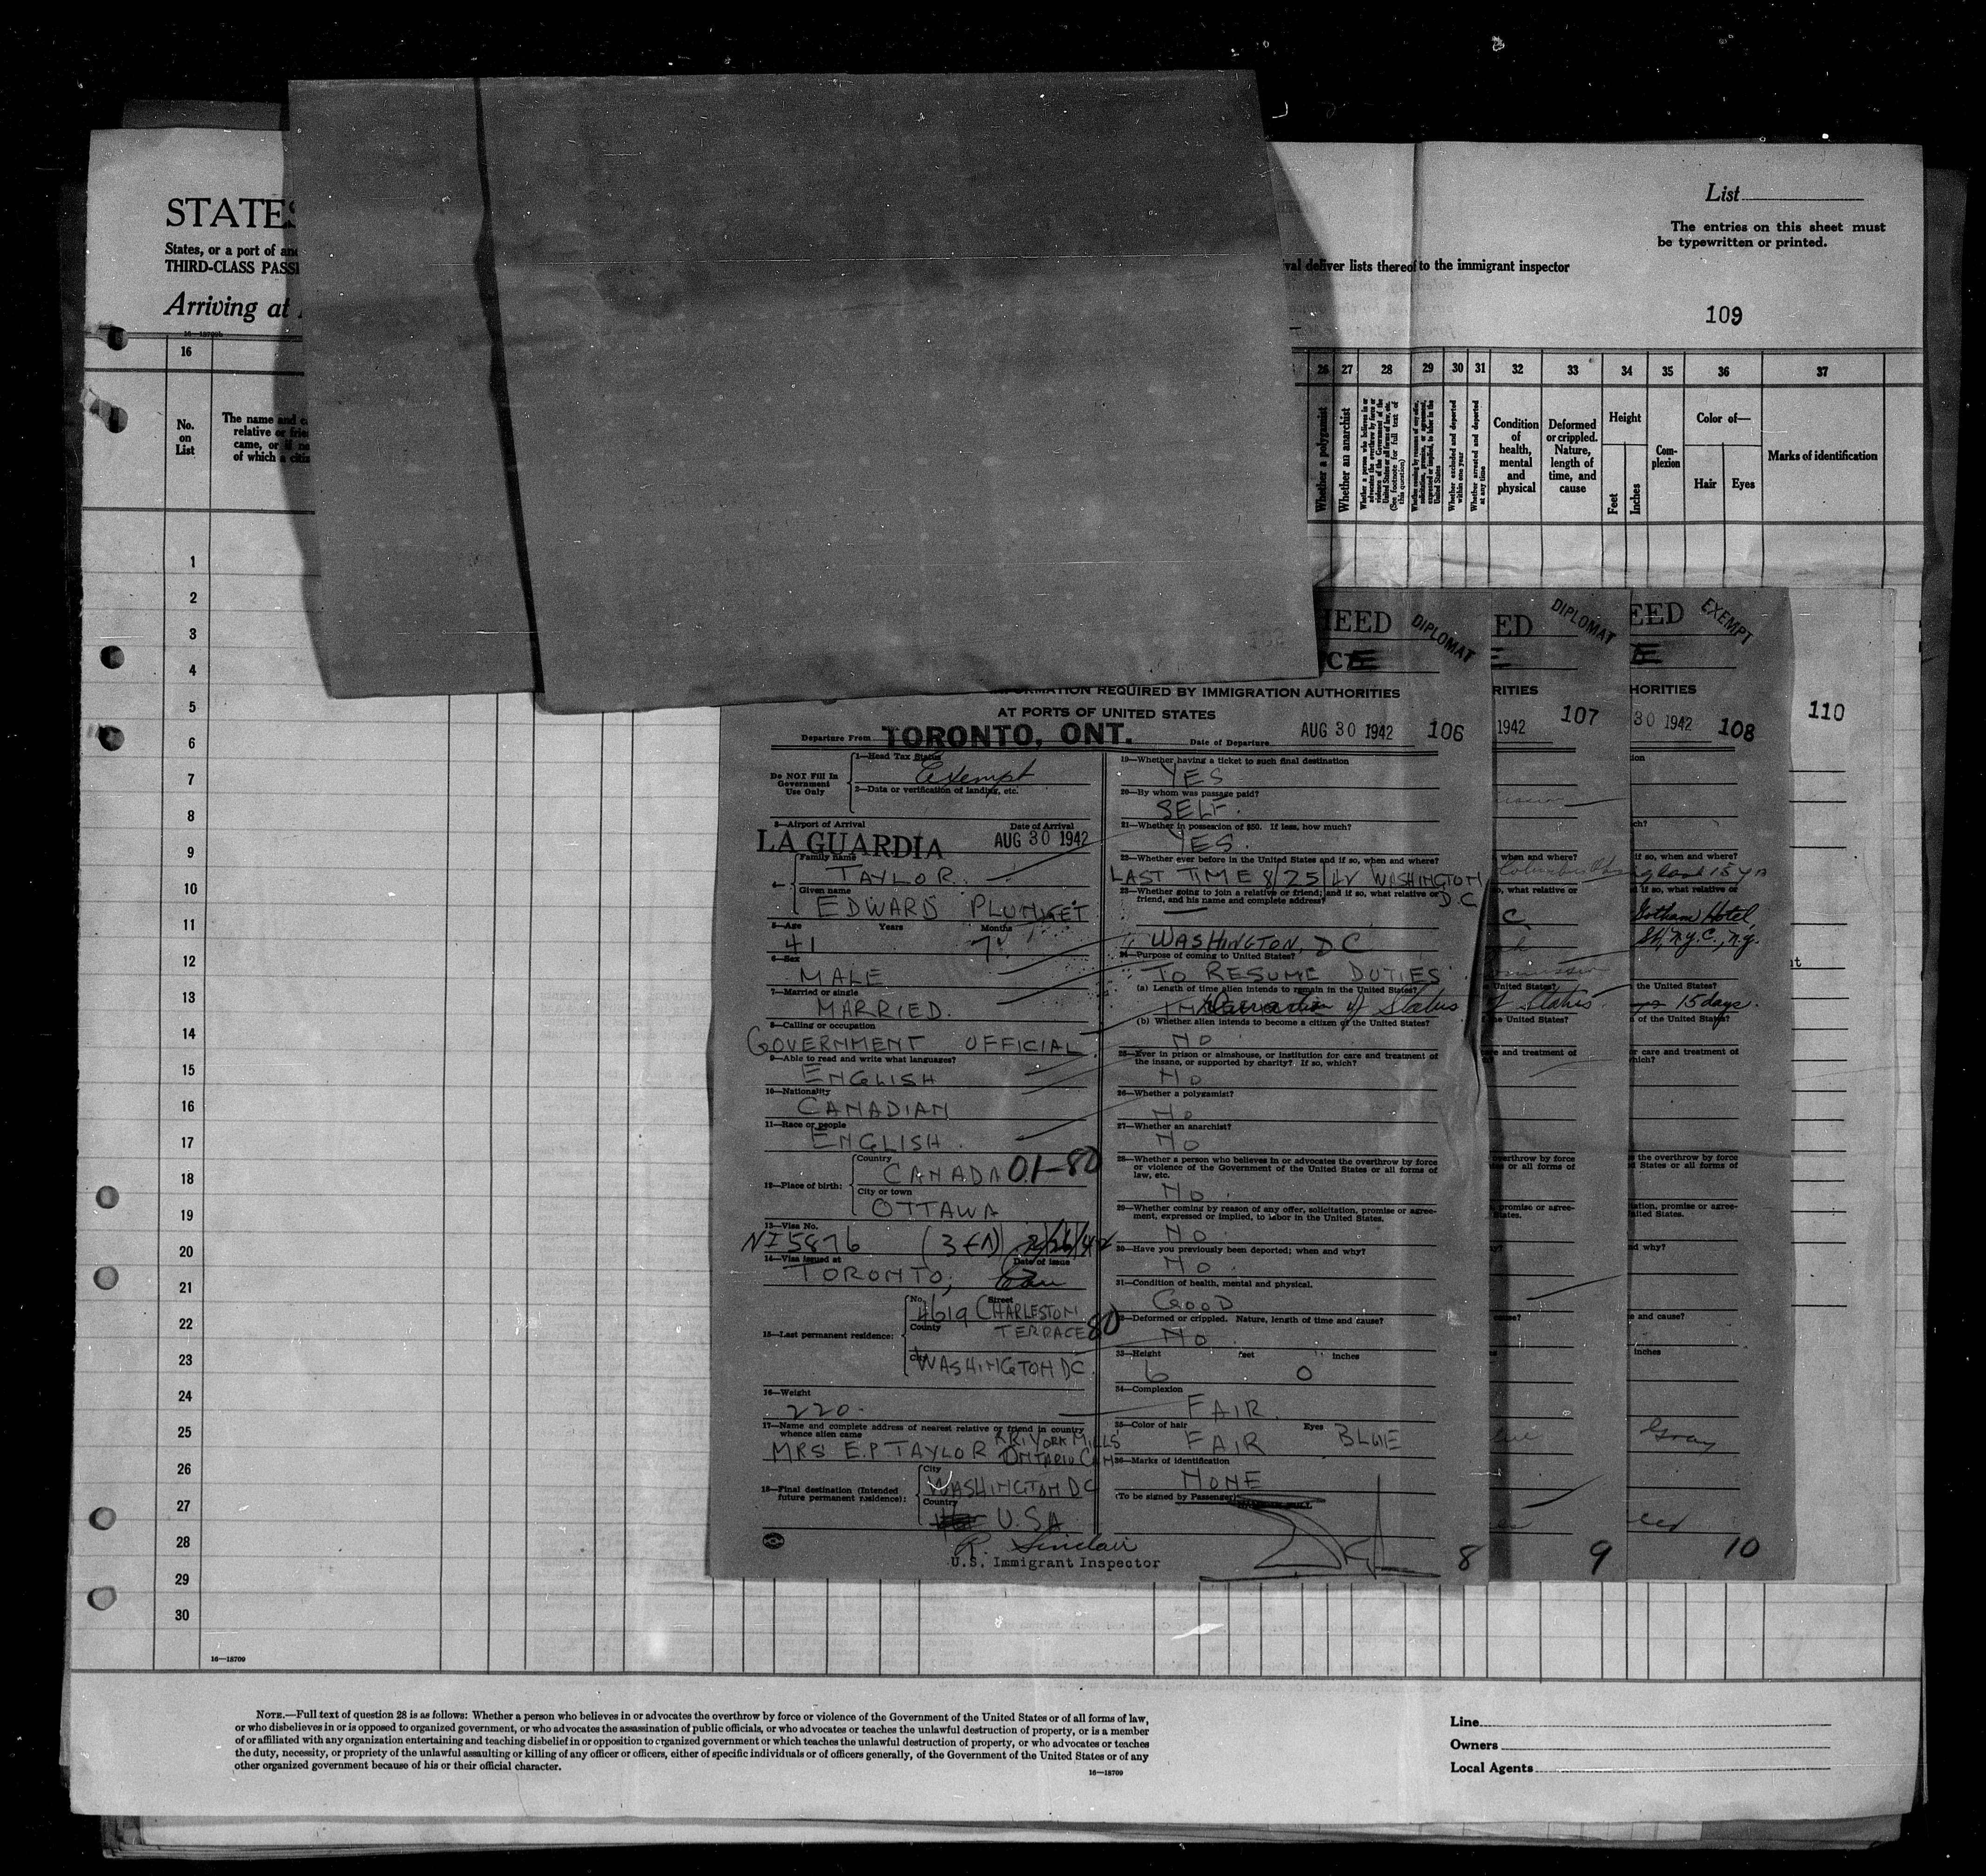 STATES
States, or a port of
THIRD-CLASS
Arriving at
16—18709b
List
The entries on this sheet must
be typewritten or printed.
deliver lists thereof to the immigrant inspector
109
16
26 27 28 29 30 31 32 33 34 35 36 37
No.
on
List
The name and
relative or
came, or if
of which a
Whether a polygamist
Whether an anarchist
Whether excluded and deported within one year
Whether arrested and deported at any time
Condition
of
health,
mental
and
physical
Deformed
or crippled.
Nature,
length of
time, and
cause
Height
Feet
Inches
Com-
plexion
Color of—
Hair
Eyes
Marks of identification
1
2
3
4
5
6
7
8
9
10
11
12
13
14
15
16
17
18
19
20
21
22
23
24
25
26
27
28
29
30
16—18709
HEED
DIPLOMAT
INFORMATION REQUIRED BY IMMIGRATION AUTHORITIES
AT PORTS OF UNITED STATES
Departure From TORONTO, ONT. Date of Departure AUG 30 1942 106
Do NOT Fill In
Government
Use Only
1—Head Tax Status
Exempt
2—Data or verification of landing, etc.
3—Airport of Arrival Date of Arrival
LA GUARDIA AUG 30 1942
4—
Family name
TAYLOR
Given name
EDWARD PLUNKET
5—Age Years Months
41 7
6—Sex
MALE
7—Married or single
MARRIED.
8—Calling or occupation
GOVERNMENT OFFICIAL
9—Able to read and write what languages?
ENGLISH
10—Nationality
CANADIAN
11—Race or people
ENGLISH.
12—Place of birth:
Country
CANADA 01-80
City or town
OTTAWA
13—Visa No.
NI5876 (3 (1)
14—Visa issued at Date of Issue
TORONTO, Can
15—Last permanent residence:
No. Street
4619 CHARLESTON
County
TERRACE 80
City
WASHINGTON DC
16—Weight
220.
17—Name and complete address of nearest relative or friend in country
whence alien came
MRS E.P TAYLOR RR1 YORK MILLS
ONTARIO CAN
18—Final destination (Intended
future permanent residence):
City
WASHINGTON DC
Country
U.SA
R. Sinclair
U.S. Immigrant Inspector
19—Whether having a ticket to such final destination
YES
20—By whom was passage paid?
SELF.
21—Whether in possession of $50. If less, how much?
YES.
22—Whether ever before in the United States and if so, when and where?
LAST TIME 8/25/42 WASHINGTON
D.C
23—Whether going to join a relative or friend; and if so, what relative or
friend, and his name and complete address?
WASHINGTON, DC
24—Purpose of coming to United States?
TO RESUME DUTIES
(a) Length of time alien intends to remain in the United States?
Duration of Status
(b) Whether alien intends to become a citizen of the United States?
NO
25—Ever in prison or almshouse, or institution for care and treatment of
the insane, or supported by charity? If so, which?
NO
26—Whether a polygamist?
NO
27—Whether an anarchist?
NO
28—Whether a person who believes in or advocates the overthrow by force
or violence of the Government of the United States or all forms of
law, etc.
NO
29—Whether coming by reason of any offer, solicitation, promise or agree-
ment, expressed or implied, to labor in the United States.
NO.
30—Have you previously been deported; when and why?
NO.
31—Condition of health, mental and physical.
GOOD
32—Deformed or crippled. Nature, length of time and cause?
NO
33—Height feet inches
6 0
34—Complexion
FAIR
35—Color of hair Eyes
FAIR BLUE
36—Marks of identification
NONE
(To be signed by Passenger)
8
ED
DIPLOMAT
RITIES
1942 107
when and where?
what relative or
C
United States?
of Status
the United States?
and treatment of
overthrow by force
or all forms of
promise or agree-
States.
cause?
9
EED
EXEMPT
HORITIES
30 1942 108
if so, when and where?
15 yr
if so, what relative or
Gotham Hotel
St, N.Y.C., N.Y.
the United States?
15 days.
of the United States?
or care and treatment of
which?
the overthrow by force
States or all forms of
promise or agree-
United States.
and why?
and cause?
inches
Gray
10
110
NOTE.—Full text of question 28 is as follows: Whether a person who believes in or advocates the overthrow by force or violence of the Government of the United States or of all forms of law,
or who disbelieves in or is opposed to organized government, or who advocates the assassination of public officials, or who advocates or teaches the unlawful destruction of property, or is a member
of or affiliated with any organization entertaining and teaching disbelief in or opposition to organized government or which teaches the unlawful destruction of property, or who advocates or teaches
the duty, necessity, or propriety of the unlawful assaulting or killing of any officer or officers, either of specific individuals or of officers generally, of the Government of the United States or of any
other organized government because of his or their official character.
16—18709
Line
Owners
Local Agents